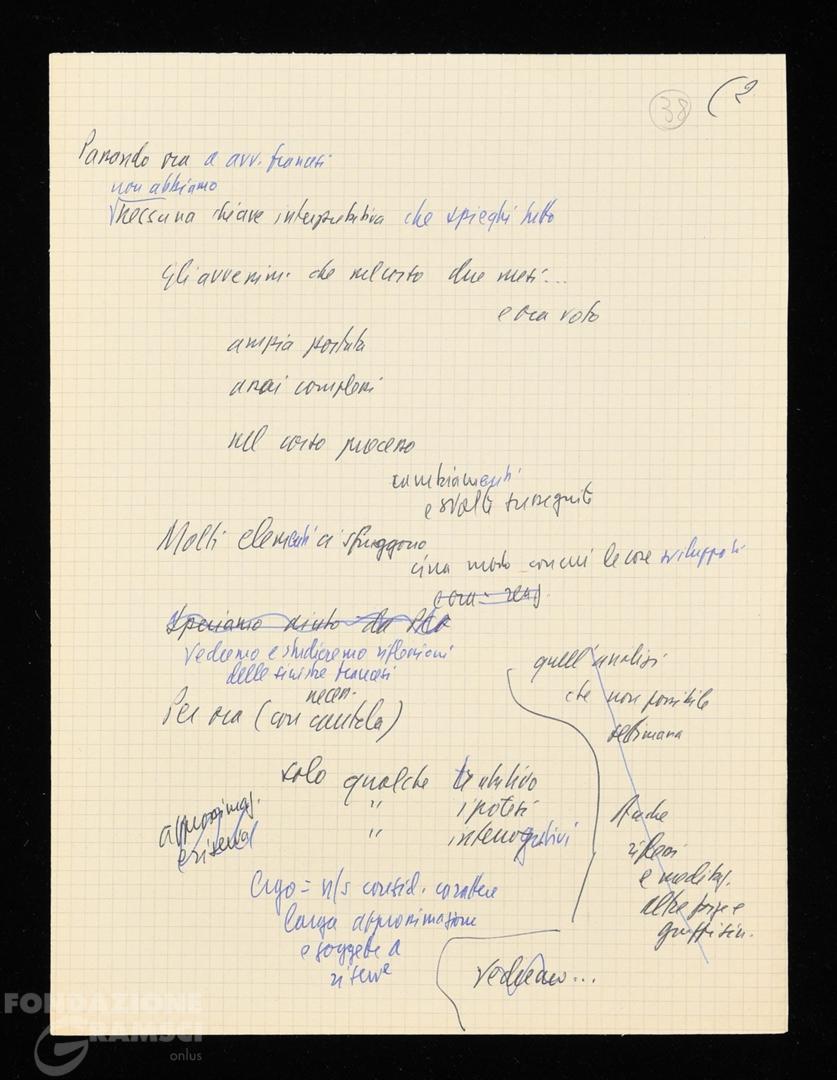 38 (2
Passando ora a avv. francesi
non abbiamo
nessuna chiave interpretativa che spieghi tutto
Gli avvenim. che nel corso due mesi...
e ora voto
ampia portata
assai complessi
nel corso processo
cambiamenti
e svolte susseguite
Molti elementi ci sfuggono
circa modo con cui le cose sviluppati
Speriamo aiuto da
vedremo e studieremo riflessioni
delle sinistre francesi
necess.
Per ora (con cautela)
solo qualche tentativo
" ipotesi
" interrogativi
approssimaz.
e riserva
Ergo = n/s consid. carattere
larga approssimazione
e soggette a
riserve
quell'analisi
che non possibile
settimana
Anche
rifless
e meditaz.
altre forze e
gruppi sin.
vedremo...
FONDAZIONE
GRAMSCI
onlus